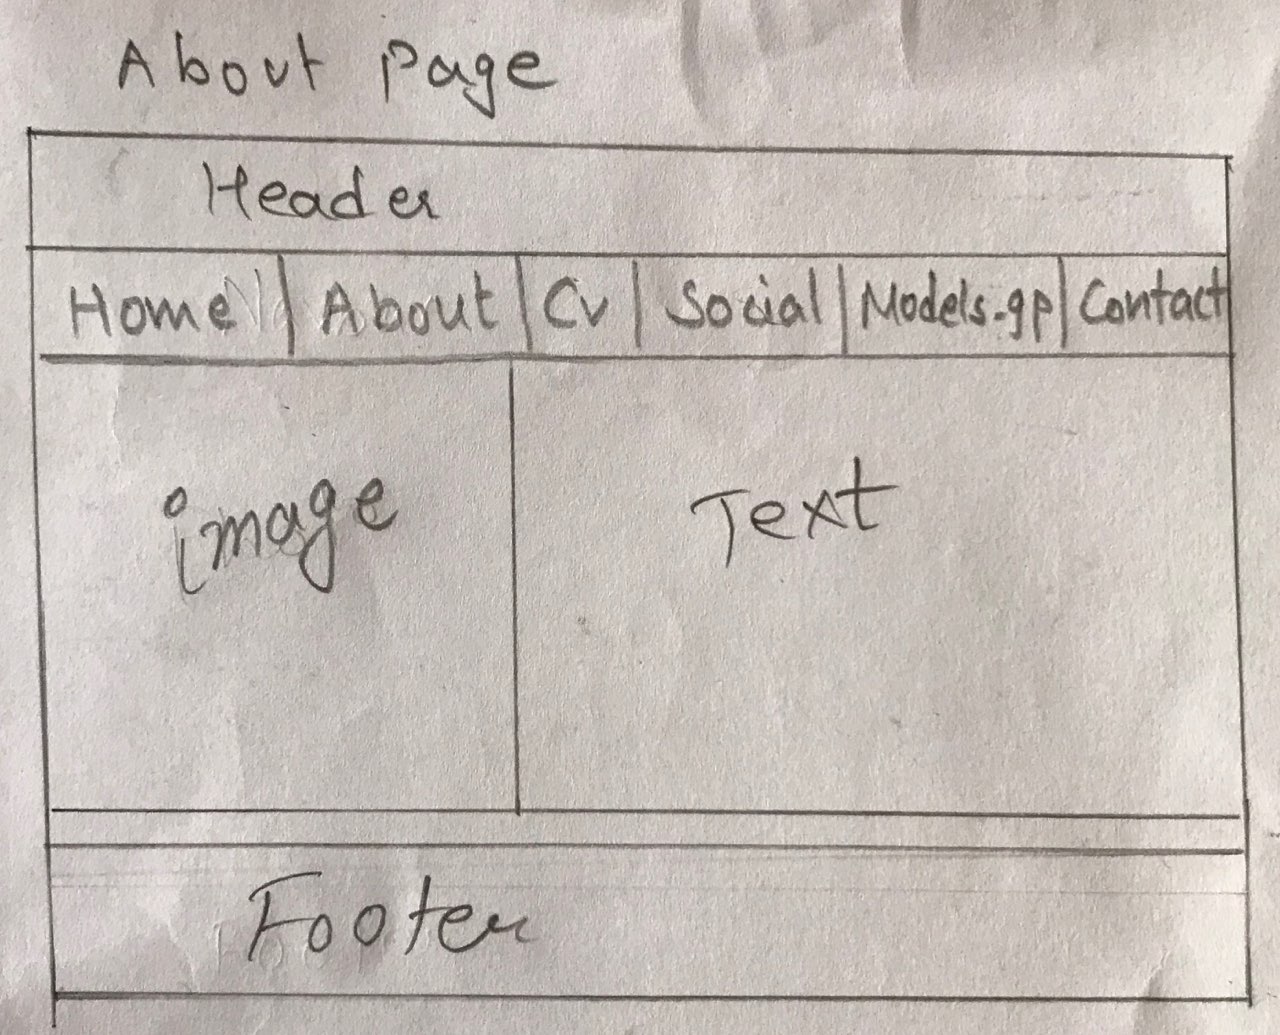 About Page
Header
Home About Cv Social Models.gp Contact
image Text
Footer